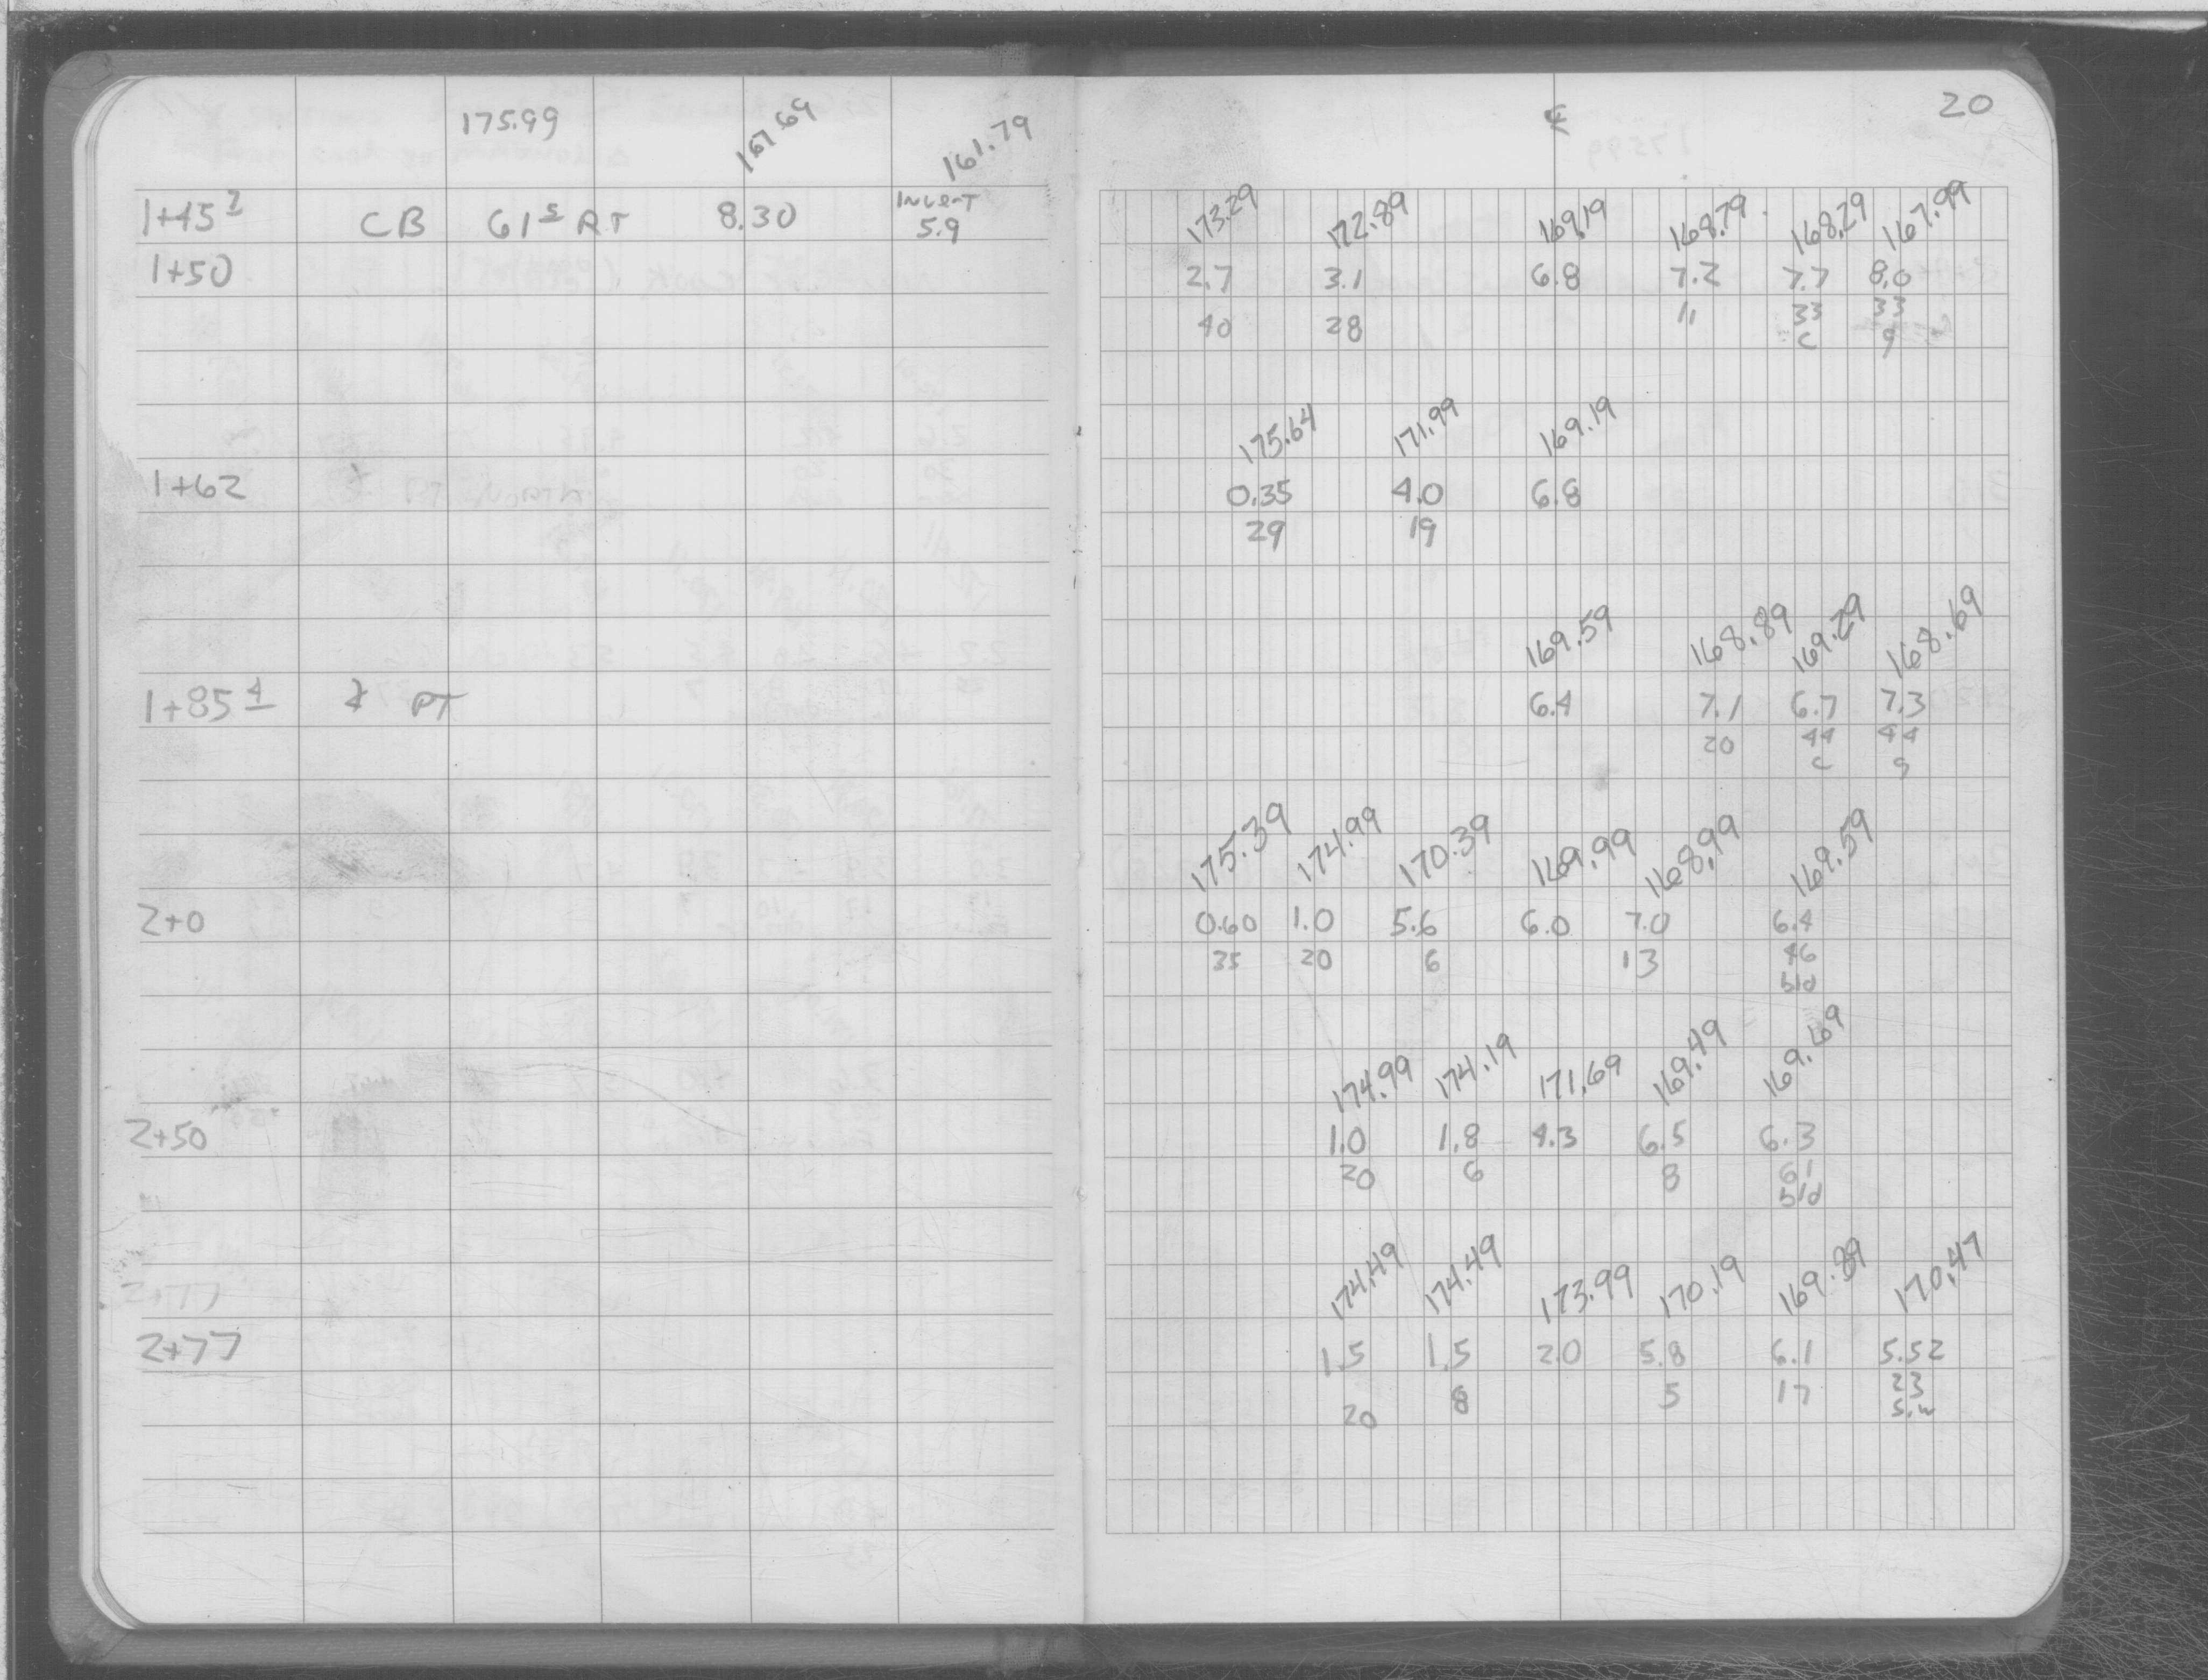 175.99 167.69 161.79
1+45⁷ CB 61⁵ RT 8.30 INVERT 5.9
1+50
1+62
1+85⁴ PT
2+0
2+50
2+77
2+77
℄ 20
173.29 172.89 169.19 168.79 168.29 167.99
2.7 3.1 6.8 7.2 7.7 8.0
40 28 11 33 33
c g
175.64 171.99 169.19
0.35 4.0 6.8
29 19
169.59 168.89 169.29 168.69
6.4 7.1 6.7 7.3
20 44 44
c g
175.39 174.99 170.39 169.99 168.99 169.59
0.60 1.0 5.6 6.0 7.0 6.4
35 20 6 13 46
bld
174.99 174.19 171.69 169.49 169.69
1.0 1.8 4.3 6.5 6.3
20 6 8 61
bld
174.49 174.49 173.99 170.19 169.89 170.47
1.5 1.5 2.0 5.8 6.1 5.52
20 8 5 17 23
S.W